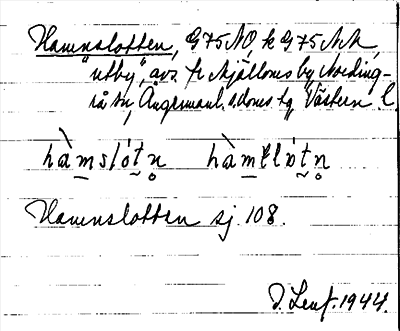 Hamnslotten, G 75 NO, k G 75 NA
"utby", avs. fr Mjälloms by, Nording-
rå sn, Ångermanl. s. doms tg Västern. l.
hàmslótn hàmtlótn
Hamnslotten sj. 108.
D. Lenf. 1944.